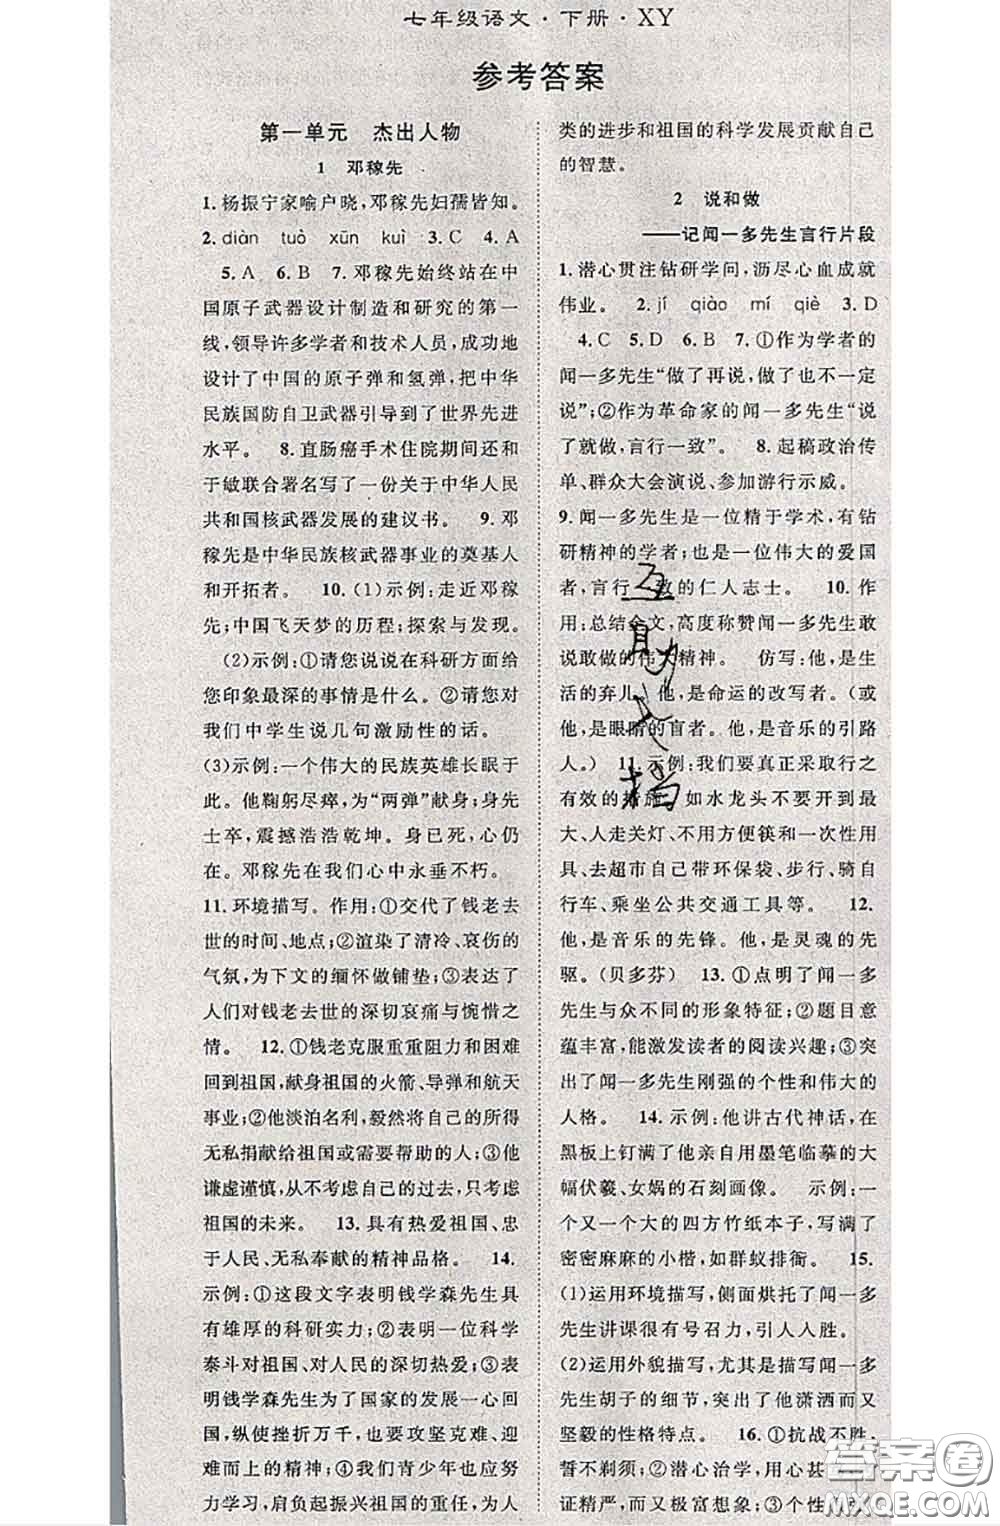 七年级语文·下册·XY
参考答案
第一单元 杰出人物
1 邓稼先
1.杨振宁家喻户晓,邓稼先妇孺皆知。
2.diàn tuò xūn kuì 3.C 4.A
5.A 6.B 7.邓稼先始终站在中
国原子武器设计制造和研究的第一
线,领导许多学者和技术人员,成功地
设计了中国的原子弹和氢弹,把中华
民族国防自卫武器引导到了世界先进
水平。 8.直肠癌手术住院期间还和
于敏联合署名写了一份关于中华人民
共和国核武器发展的建议书。 9.邓
稼先是中华民族核武器事业的奠基人
和开拓者。 10.(1)示例:走近邓稼
先;中国飞天梦的历程;探索与发现。
(2)示例:①请您说说在科研方面给
您印象最深的事情是什么。②请您对
我们中学生说几句激励性的话。
(3)示例:一个伟大的民族英雄长眠于
此。他鞠躬尽瘁,为“两弹”献身;身先
士卒,震撼浩浩乾坤。身已死,心仍
在。邓稼先在我们心中永垂不朽。
11.环境描写。作用:①交代了钱老去
世的时间、地点;②渲染了清冷、哀伤的
气氛,为下文的缅怀做铺垫;③表达了
人们对钱老去世的深切哀痛与惋惜之
情。 12.①钱老克服重重阻力和困难
回到祖国,献身祖国的火箭、导弹和航天
事业;②他淡泊名利,毅然将自己的所得
无私捐献给祖国或需要帮助的人;③他
谦虚谨慎,不考虑自己的过去,只考虑
祖国的未来。 13.具有热爱祖国、忠
于人民、无私奉献的精神品格。 14.
示例:①这段文字表明钱学森先生具
有雄厚的科研实力;②表明一位科学
泰斗对祖国、对人民的深切热爱;③表
明钱学森先生为了国家的发展一心回
国,纵使挫折万千,也要攻坚克难、迎
难而上的精神;④我们青少年也应努
力学习,肩负起振兴祖国的重任,为人
类的进步和祖国的科学发展贡献自己
的智慧。
2 说和做
——记闻一多先生言行片段
1.潜心贯注钻研学问,沥尽心血成就
伟业。 2.jí qiào mí qiè 3.D
4.C 5.D 6.B 7.①作为学者的
闻一多先生“做了再说,做了也不一定
说”;②作为革命家的闻一多先生“说
了就做,言行一致”。 8.起稿政治传
单、群众大会演说、参加游行示威。
9.闻一多先生是一位精于学术,有钻
研精神的学者;也是一位伟大的爱国
者,言行一致的仁人志士。 10.作
用:总结全文,高度称赞闻一多先生敢
说敢做的伟大精神。 仿写:他,是生
活的弃儿。他,是命运的改写者。(或
他,是眼睛的盲者。他,是音乐的引路
人。) 11.示例:我们要真正采取行之
有效的措施。如水龙头不要开到最
大、人走关灯、不用方便筷和一次性用
具、去超市自己带环保袋、步行、骑自
行车、乘坐公共交通工具等。 12.
他,是音乐的先锋。他,是灵魂的先
驱。(贝多芬) 13.①点明了闻一多
先生与众不同的形象特征;②题目意
蕴丰富,能激发读者的阅读兴趣;③突
出了闻一多先生刚强的个性和伟大的
人格。 14.示例:他讲古代神话,在
黑板上钉满了他亲自用墨笔临摹的大
幅伏羲、女娲的石刻画像。 示例:一
个又一个大的四方竹纸本子,写满了
密密麻麻的小楷,如群蚁排衙。 15.
(1)运用环境描写,侧面烘托了闻一多
先生讲课很有号召力,引人入胜。
(2)运用外貌描写,尤其是描写闻一多
先生胡子的细节,突出了他潇洒而又
坚毅的性格特点。 16.①抗战不胜,
誓不剃须;②潜心治学,
证精严,而又极富想象;③
互助文档
答案卷
MXQE.COM